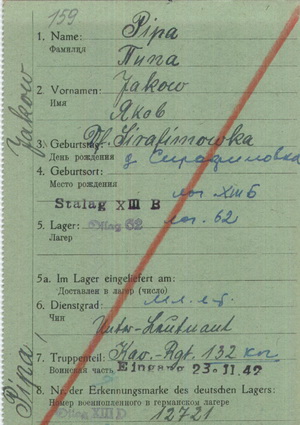 159
1. Name: Pipa
Фамилия Пипа
2. Vornamen: Jakow
Имя Яков
3. Geburtstag: Df. Sirafimowka
День рождения д. Сирафимовка
4. Geburtsort:
Место рождения лог. XIII Б
Stalag XIII B
5. Lager: Oflag 62 лог. 62
Лагер
5a. Im Lager eingeliefert am:
Доставлен в лагер (число)
6. Dienstgrad: мл. л-т.
Чин Unter-Leutnant
7. Truppenteil: Kav.-Rgt. 132 кп
Воинская часть Eingang 23.11.42
8. Nr. der Erkennungsmarke des deutschen Lagers:
Номер военнопленного в германском лагере
Oflag XIII D 12721
Pipa, Jakow